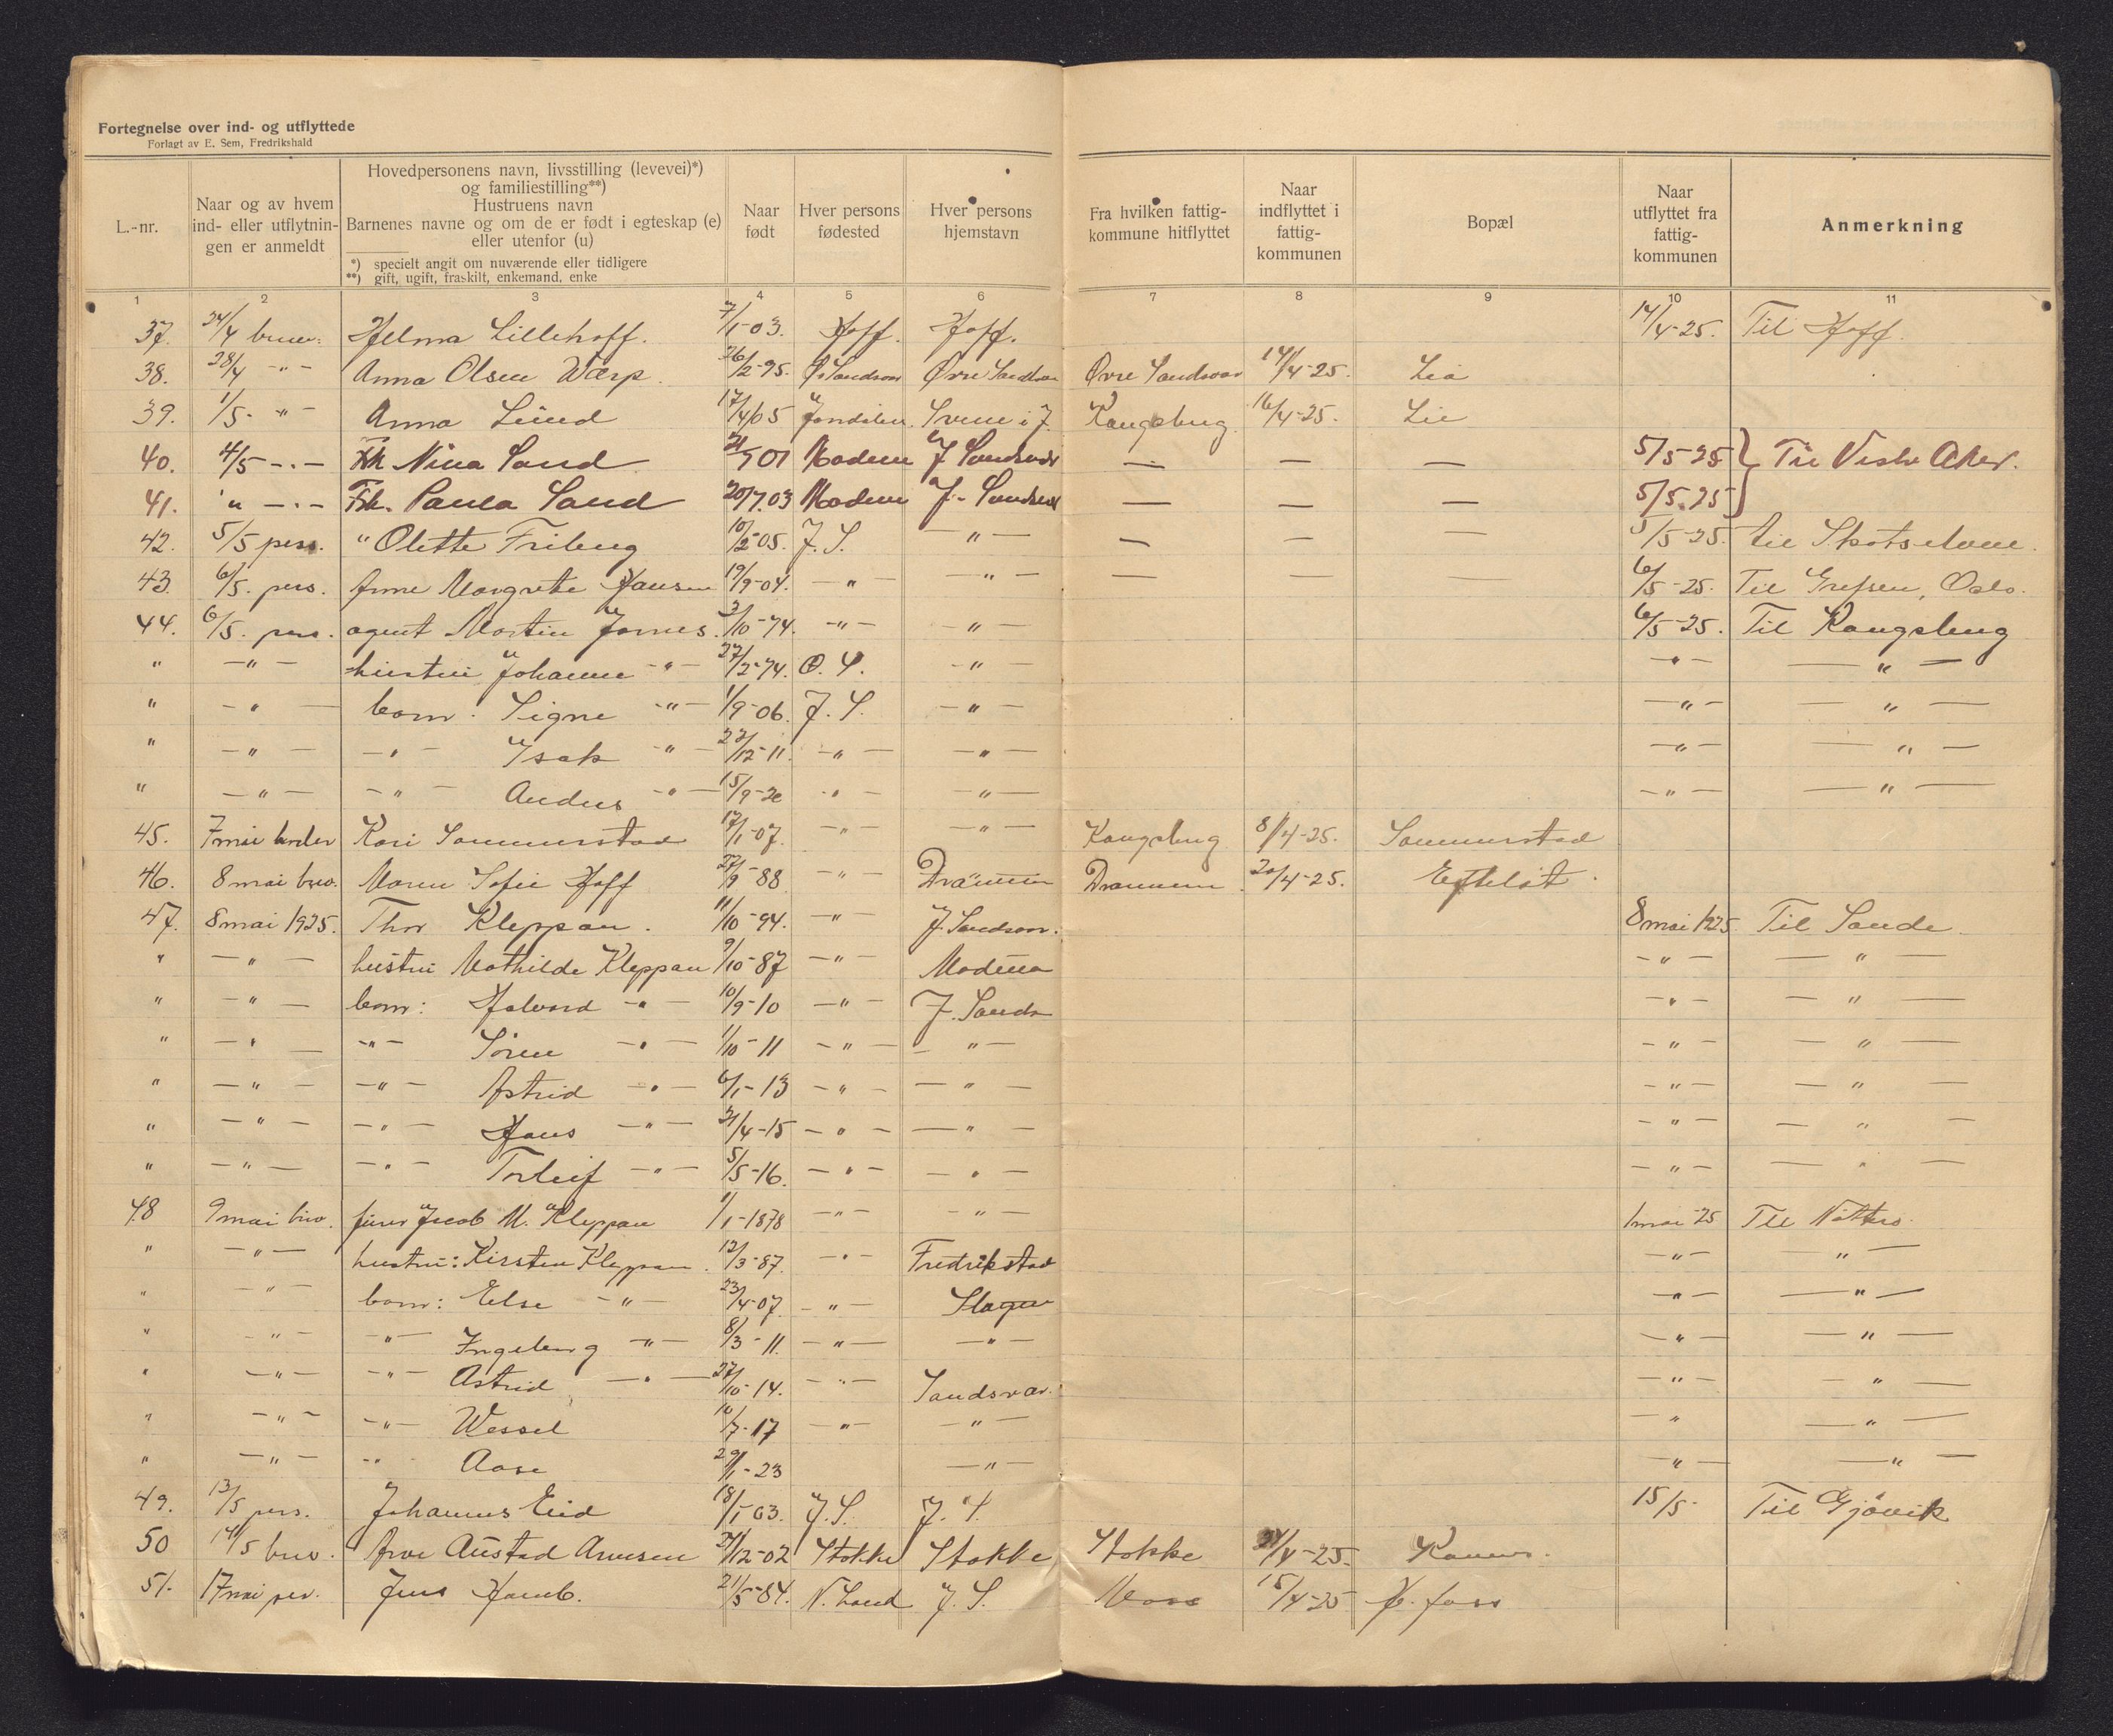 Fortegnelse over ind- og utflyttede
Forlagt av E. Sem, Fredrikshald
L.-nr.
Naar og av hvem ind- eller utflytnin-gen er anmeldt
Hovedpersonens navn, livsstilling (levevei)*)
og familiestilling**)
Hustruens navn
Barnenes navne og om de er født i egteskap (e)
eller utenfor (u)
*) specielt angit om nuværende eller tidligere
**) gift, ugift, fraskilt, enkemand, enke
Naar født
Hver persons fødested
Hver persons hjemstavn
Fra hvilken fattig-kommune hitflyttet
Naar indflyttet i fattig-kommunen
Bopæl
Naar utflyttet fra fattig-kommunen
Anmerkning
1 2 3 4 5 6 7 8 9 10 11
37. 24/4 Hjelma Lillehoff. 7/1-03. Hoff. Hoff. 14/4-25. Til Hoff.
38. 28/4 -"- Anna Olsen Wærp. 26/2-95. Ø. Sandsvær Øvre Sandsvær Øvre Sandsvær 14/4-25. Lia
39. 1/5- "- Anna Lund 17/4 05 Jondalen Svene i J. Kongsberg 16/4-25. Lie
40. 4/5 -"- Frk Nina Sand 01 Modum Y. Sandsvær — — — 5/5-25 } Til Vestre Aker.
41. " -"- Frk. Paula Sand 20/7.03 Modum Y. Sandsvær — — — 5/5.25
42. 5/5 pers. " Olette Friberg 10/2-05. J. S. -"- — — — 5/5-25. til Skotselven.
43. 6/5. pers. Anne Margrete Hansen 19/9-04. -"- -"- — — — 6/5-25. Til Grefsen, Oslo.
44. 6/5. pers. agent Martin Jornes. 3/10-74. -"- -"- 6/5-25. Til Kongsberg
" -"- hustru Johanne -"- 27/2-74. O. S. -"- -"- -"-
" -"- barn: Signe -"- 1/9-06. J. S. -"- -"- -"-
" -"- -"- Isak -"- 22/12-11. -"- -"- -"- -"-
" -"- -"- Anders -"- 15/9-20 -"- -"- -"- -"-
45. 7 mai Kari Sommerstad 17/1-07. -"- -"- Kongsberg 8/4-25. Sommerstad
46. 8 mai brev. Maren Sofie Hoff 27/9-88 -"- Drammen Drammen 20/4-25. Efteløt
47. 8 mai 1925. Thor Kleppan. 11/10-94. -"- J. Sandsvær. 8 mai 1925. Til Sande
" -"- hustru Mathilde Kleppan 9/10-87 -"- Modum -"- -"-
" -"- barn: Halvord -"- 10/9-10 -"- J. Sands -"- -"-
" -"- -"- Sören -"- 1/10-11 -"- -"- -"- -"-
" -"- -"- Astrid -"- 6/1-13 -"- -"- -"- -"-
" -"- -"- Hans -"- 21/4-15 -"- -"- -"- -"-
" -"- -"- Torleif -"- 5/5-16. -"- -"- -"- -"-
48 9 mai brev. Jacob M. Kleppan 1/1-1878 -"- -"- 1 mai 25 Til Nøtterø.
" -"- hustru: Kirsten Kleppan. 12/3-87. -"- Fredrikstad -"- -"-
" -"- barn: Else -"- 23/4-07. -"- Slagen -"- -"-
" -"- -"- Ingeborg -"- 8/3-11. -"- -"- -"- -"-
" -"- -"- Astrid -"- 27/10-14. -"- Sandsvær. -"- -"-
" -"- -"- Wessel 10/7-17 -"- -"- -"- -"-
" -"- -"- Aase 29/1-23 -"- -"- -"-
49. 13/5 pers. Johannes Eid 18/1-03. J. S. J. S. 15/5- Til Gjövik
50 14/5 brev. Arve Austad Arnesen /12-02 Stokke Stokke Stokke /4-25.
51. 17 mai per. Jens Hamb. 21/5-84. N. Land J. S. 15/4-25 H. foss